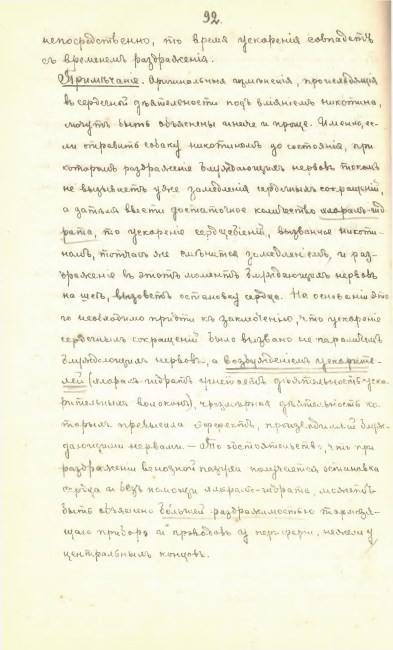 92.
непосредственно, то время ускоренія совпадетъ
съ временемъ раздраженія.
Примѣчаніе. Описанныя измѣненія, происходящія
въ сердечной дѣятельности подъ вліяніемъ никотина,
могутъ быть объяснены иначе и проще. Именно, ес-
ли отравить собаку никотиномъ до состоянія, при
которомъ раздраженіе блуждающихъ нервовъ токомъ
не вызываетъ уже замедленія сердечныхъ сокращеній,
а затѣмъ ввести достаточное количество хлоралъ-гид-
рата, то ускореніе сердцебіеній, вызванное никоти-
номъ, тотчасъ же смѣнится замедленіемъ, и раз-
драженіе въ этотъ моментъ блуждающихъ нервовъ
на шеѣ, вызоветъ остановку сердца. На основаніи это-
го необходимо придти къ заключенію, что ускореніе
сердечныхъ сокращеній было вызвано не параличемъ
блуждающихъ нервовъ, а возбужденіемъ ускорите-
лей (хлоралъ-гидратъ угнетаетъ дѣятельность уско-
рительныхъ волоконъ), чрезмѣрная дѣятельность ко-
торыхъ превысила эффектъ, производимый блуж-
дающими нервами. — То обстоятельство, что при
раздраженіи венозной пазухи получается остановка
сердца и безъ помощи хлоралъ-гидрата, можетъ
быть объяснено большей раздражимостью тормозя-
щаго прибора и проводовъ у периферіи, нежели у
центральныхъ концовъ.